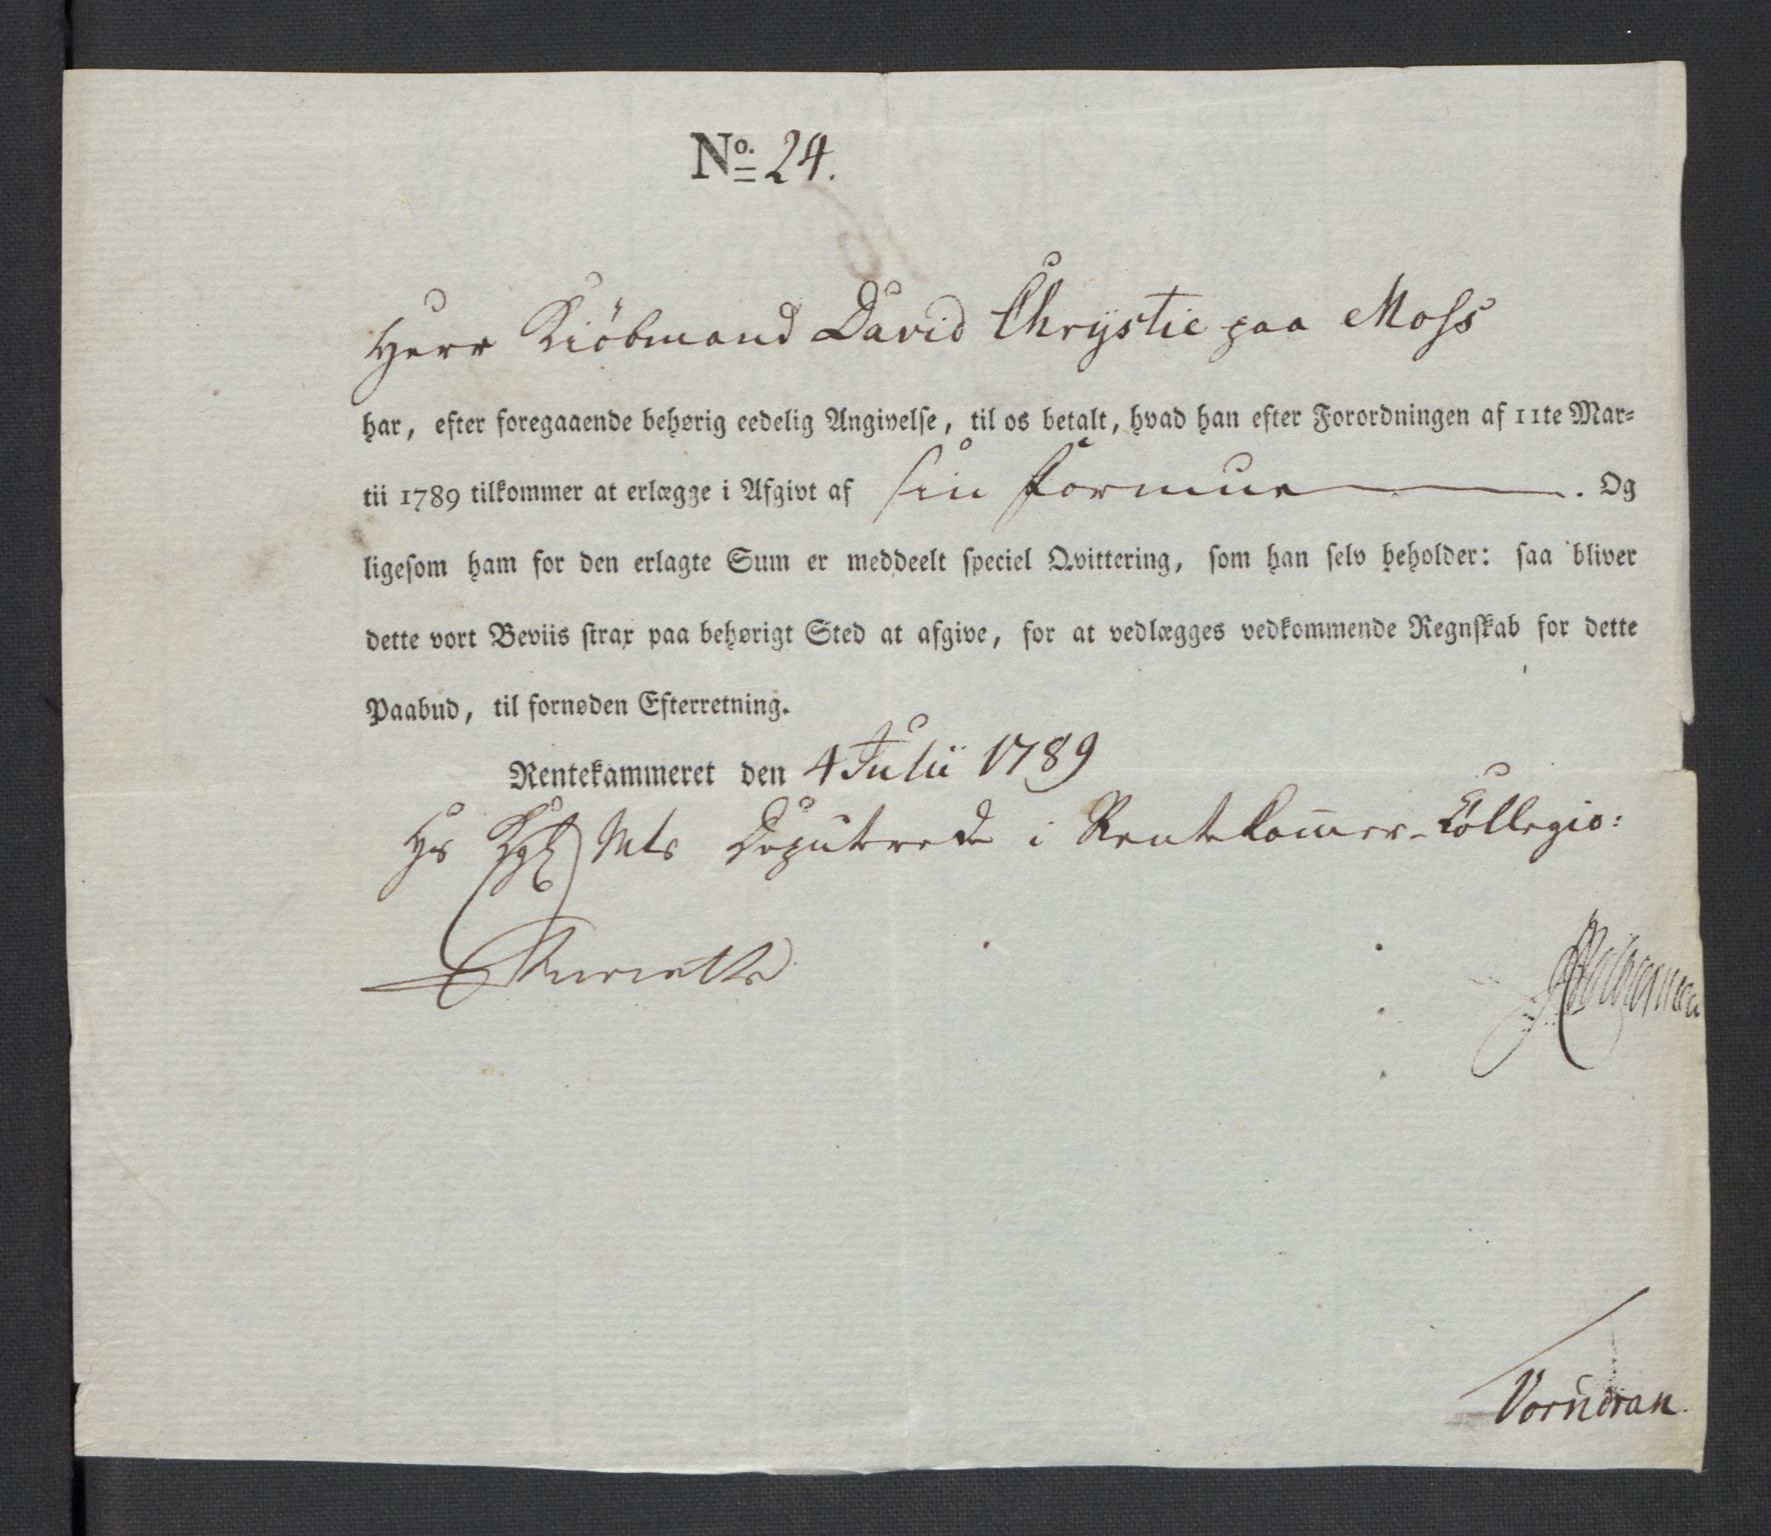 No. 24.
Herr Kiöbmand David Chrystie paa Moss
har, efter foregaaende behørig eedelig Angivelse, til os betalt, hvad han efter Forordningen af 11te Mar-
tii 1789 tilkommer at erlægge i Afgivt af sin Formue. Og
ligesom ham for den erlagte Sum er meddeelt speciel Qvittering, som han selv beholder: saa bliver
dette vort Beviis strax paa behørigt Sted at afgive, for at vedlægges vedkommende Regnskab for dette
Paabud, til fornøden Efterretning.
Rentekammeret den 4 Julii 1789
Hs Kgl Mts Deputerede i Rentekam̅er-Collegio:
Vorndran.